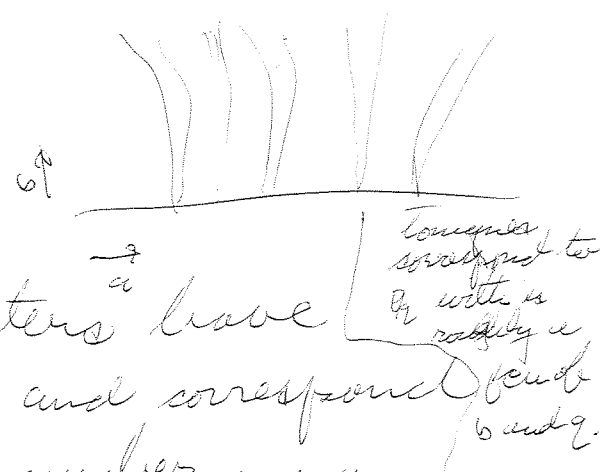 b
a
Tongues
correspond to
p/q width is
roughly a
fcn of
b and q.
ters have
and correspond